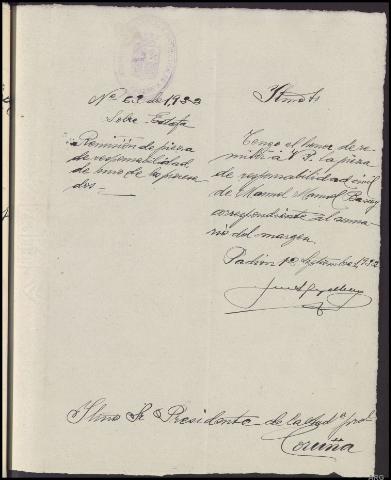 Nº 62 de 1,933
Sobre Estafa
Remisión de pieza
de responsabilidad
de uno de los procesa
dos.-
Ilmo Sr
Tengo el honor de re-
mitir a V.I. la pieza
de responsabilidad civil
de Manuel
correspondiente al suma-
rio del margen.
Padrón Septiembre 1,933
Ilmo Sr Presidente de la Audª provl
Coruña